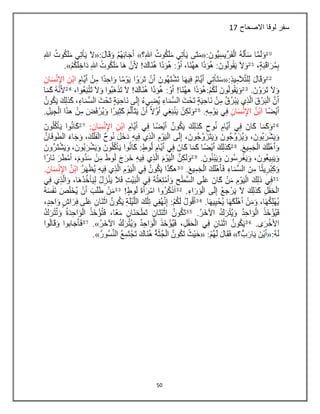 سفر لوقا الاصحاح 17
20وَلَمَّا سَأَلَهُ الْفَرِّيسِيُّونَ:«مَتَى يَأْتِي مَلَكُوتُ اللهِ؟» أَجَابَهُمْ وَقَالَ:«لاَ يَأْتِي مَلَكُوتُ اللهِ
بِمُرَاقَبَةٍ، 21وَلاَ يَقُولُونَ: هُوَذَا ههُنَا، أَوْ: هُوَذَا هُنَاكَ! لأَنْ هَا مَلَكُوتُ اللهِ دَاخِلَكُمْ».
22وَقَالَ لِلتَّلاَمِيذِ:«سَتَأْتِي أَيَّامٌ فِيهَا تَشْتَهُونَ أَنْ تَرَوْا يَوْمًا وَاحِدًا مِنْ أَيَّامِ ابْنِ الإِنْسَانِ
وَلاَ تَرَوْنَ. 23وَيَقُولُونَ لَكُمْ:هُوَذَا ههُنَا! أَوْ: هُوَذَا هُنَاكَ! لاَ تَذْهَبُوا وَلاَ تَتْبَعُوا، 24لأَنَّهُ كَمَا
أَنَّ الْبَرْقَ الَّذِي يَبْرُقُ مِنْ نَاحِيَةٍ تَحْتَ السَّمَاءِ يُضِيءُ إِلَى نَاحِيَةٍ تَحْتَ السَّمَاءِ، كَذلِكَ يَكُونُ
ابْنُ الإِنْسَانِ فِي يَوْمِهِ. 25وَلكِنْ يَنْبَغِي أَوَّلاً أَنْ يَتَأَلَّمَ كَثِيرًا وَيُرْفَضَ مِنْ هذَا الْجِيلِ.
26وَكَمَا كَانَ فِي أَيَّامِ نُوحٍ كَذلِكَ يَكُونُ أَيْضًا فِي أَيَّامِ ابْنِ الإِنْسَانِ: 27كَانُوا يَأْكُلُونَ
وَيَشْرَبُونَ، وَيُزَوِّجُونَ وَيَتَزَوَّجُونَ، إِلَى الْيَوْمِ الَّذِي فِيهِ دَخَلَ نُوحٌ الْفُلْكَ، وَجَاءَ الطُّوفَانُ
وَأَهْلَكَ الْجَمِيعَ. 28كَذلِكَ أَيْضًا كَمَا كَانَ فِي أَيَّامِ لُوطٍ: كَانُوا يَأْكُلُونَ وَيَشْرَبُونَ، وَيَشْتَرُونَ
وَيَبِيعُونَ، وَيَغْرِسُونَ وَيَبْنُونَ. 29وَلكِنَّ الْيَوْمَ الَّذِي فِيهِ خَرَجَ لُوطٌ مِنْ سَدُومَ، أَمْطَرَ نَارًا
وَكِبْرِيتًا مِنَ السَّمَاءِ فَأَهْلَكَ الْجَمِيعَ. 30هكَذَا يَكُونُ فِي الْيَوْمِ الَّذِي فِيهِ يُظْهَرُ ابْنُ الإِنْسَانِ.
31فِي ذلِكَ الْيَوْمِ مَنْ كَانَ عَلَى السَّطْحِ وَأَمْتِعَتُهُ فِي الْبَيْتِ فَلاَ يَنْزِلْ لِيَأْخُذَهَا، وَالَّذِي فِي
الْحَقْلِ كَذلِكَ لاَ يَرْجِعْ إِلَى الْوَرَاءِ. 32اُذْكُرُوا امْرَأَةَ لُوطٍ! 33مَنْ طَلَبَ أَنْ يُخَلِّصَ نَفْسَهُ
يُهْلِكُهَا، وَمَنْ أَهْلَكَهَا يُحْيِيهَا. 34أَقُولُ لَكُمْ: إِنَّهُ فِي تِلْكَ اللَّيْلَةِ يَكُونُ اثْنَانِ عَلَى فِرَاشٍ وَاحِدٍ،
فَيُؤْخَذُ الْوَاحِدُ وَيُتْرَكُ الآخَرُ. 35تَكُونُ اثْنَتَانِ تَطْحَنَانِ مَعًا، فَتُؤْخَذُ الْوَاحِدَةُ وَتُتْرَكُ
الأُخْرَى. 36يَكُونُ اثْنَانِ فِي الْحَقْلِ، فَيُؤْخَذُ الْوَاحِدُ وَيُتْرَكُ الآخَرُ». 37فَأَجَابوا وَقَالُوا
لَهُ:«أَيْنَ يَارَبُّ؟» فَقَالَ لَهُمْ: «حَيْثُ تَكُونُ الْجُثَّةُ هُنَاكَ تَجْتَمِعُ النُّسُورُ».
50